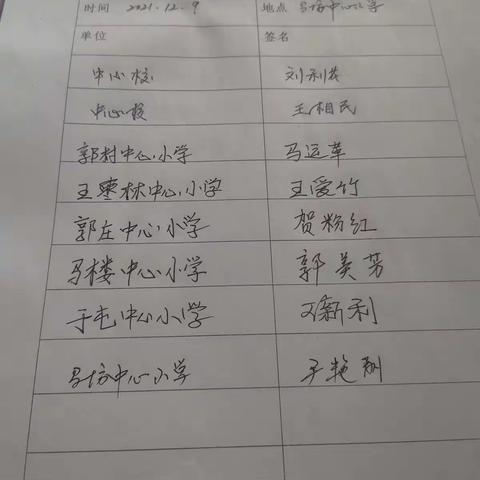 时间 2021.12.9 地点 马坊中心小学
单位 签名
中心校 刘利芬
中心校 王相民
郭村中心小学 马运革
王枣林中心小学 王爱竹
郭庄中心小学 贺粉红
马楼中心小学 郭美芳
于屯中心小学 新利
马坊中心小学 于艳